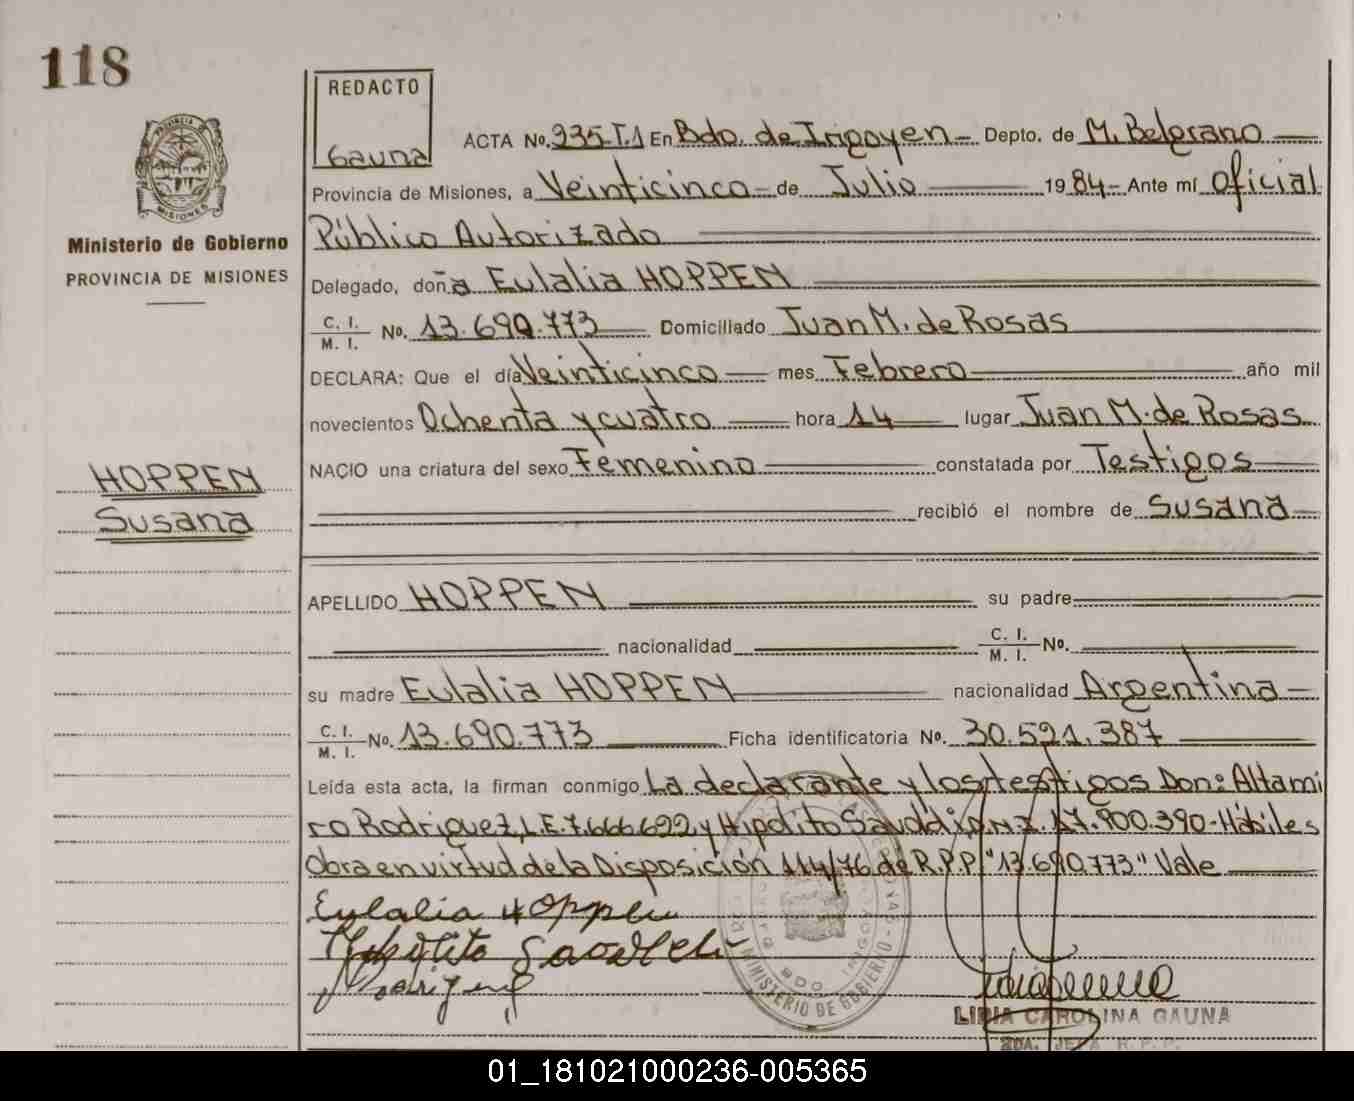 118
REDACTO
Gauna
ACTA No. 235-T.1 En Bdo. de Irigoyen Depto. de M. Belgrano
Provincia de Misiones, a Veinticinco de Julio 1984 Ante mí Oficial
Público Autorizado
Ministerio de Gobierno
PROVINCIA DE MISIONES
Delegado, doña Eulalia HOPPEN
C. I. / M. I. No. 13.690.773 Domiciliado Juan M. de Rosas
DECLARA: Que el día Veinticinco mes Febrero año mil
novecientos Ochenta y cuatro hora 14 lugar Juan M. de Rosas
NACIO una criatura del sexo Femenino constatada por Testigos
HOPPEN
Susana
recibió el nombre de Susana
APELLIDO HOPPEN su padre
nacionalidad C. I. / M. I. No.
su madre Eulalia HOPPEN nacionalidad Argentina
C. I. / M. I. No. 13.690.773 Ficha identificatoria No. 30.521.387
Leída esta acta, la firman conmigo La declarante y los testigos Don: Altami
ro Rodriguez, L.E. 7.666.692 y Hipólito 17.900.390-Hábiles
Obra en virtud de la Disposición 114/76 de R.P.P. "13.690.773" Vale
Eulalia Hoppen
Hipolito
Rodriguez
MINISTERIO DE GOBIERNO
BDO. IRIGOYEN
LIDIA CAROLINA GAUNA
2DA. JEFA R. P. P.
01_181021000236-005365